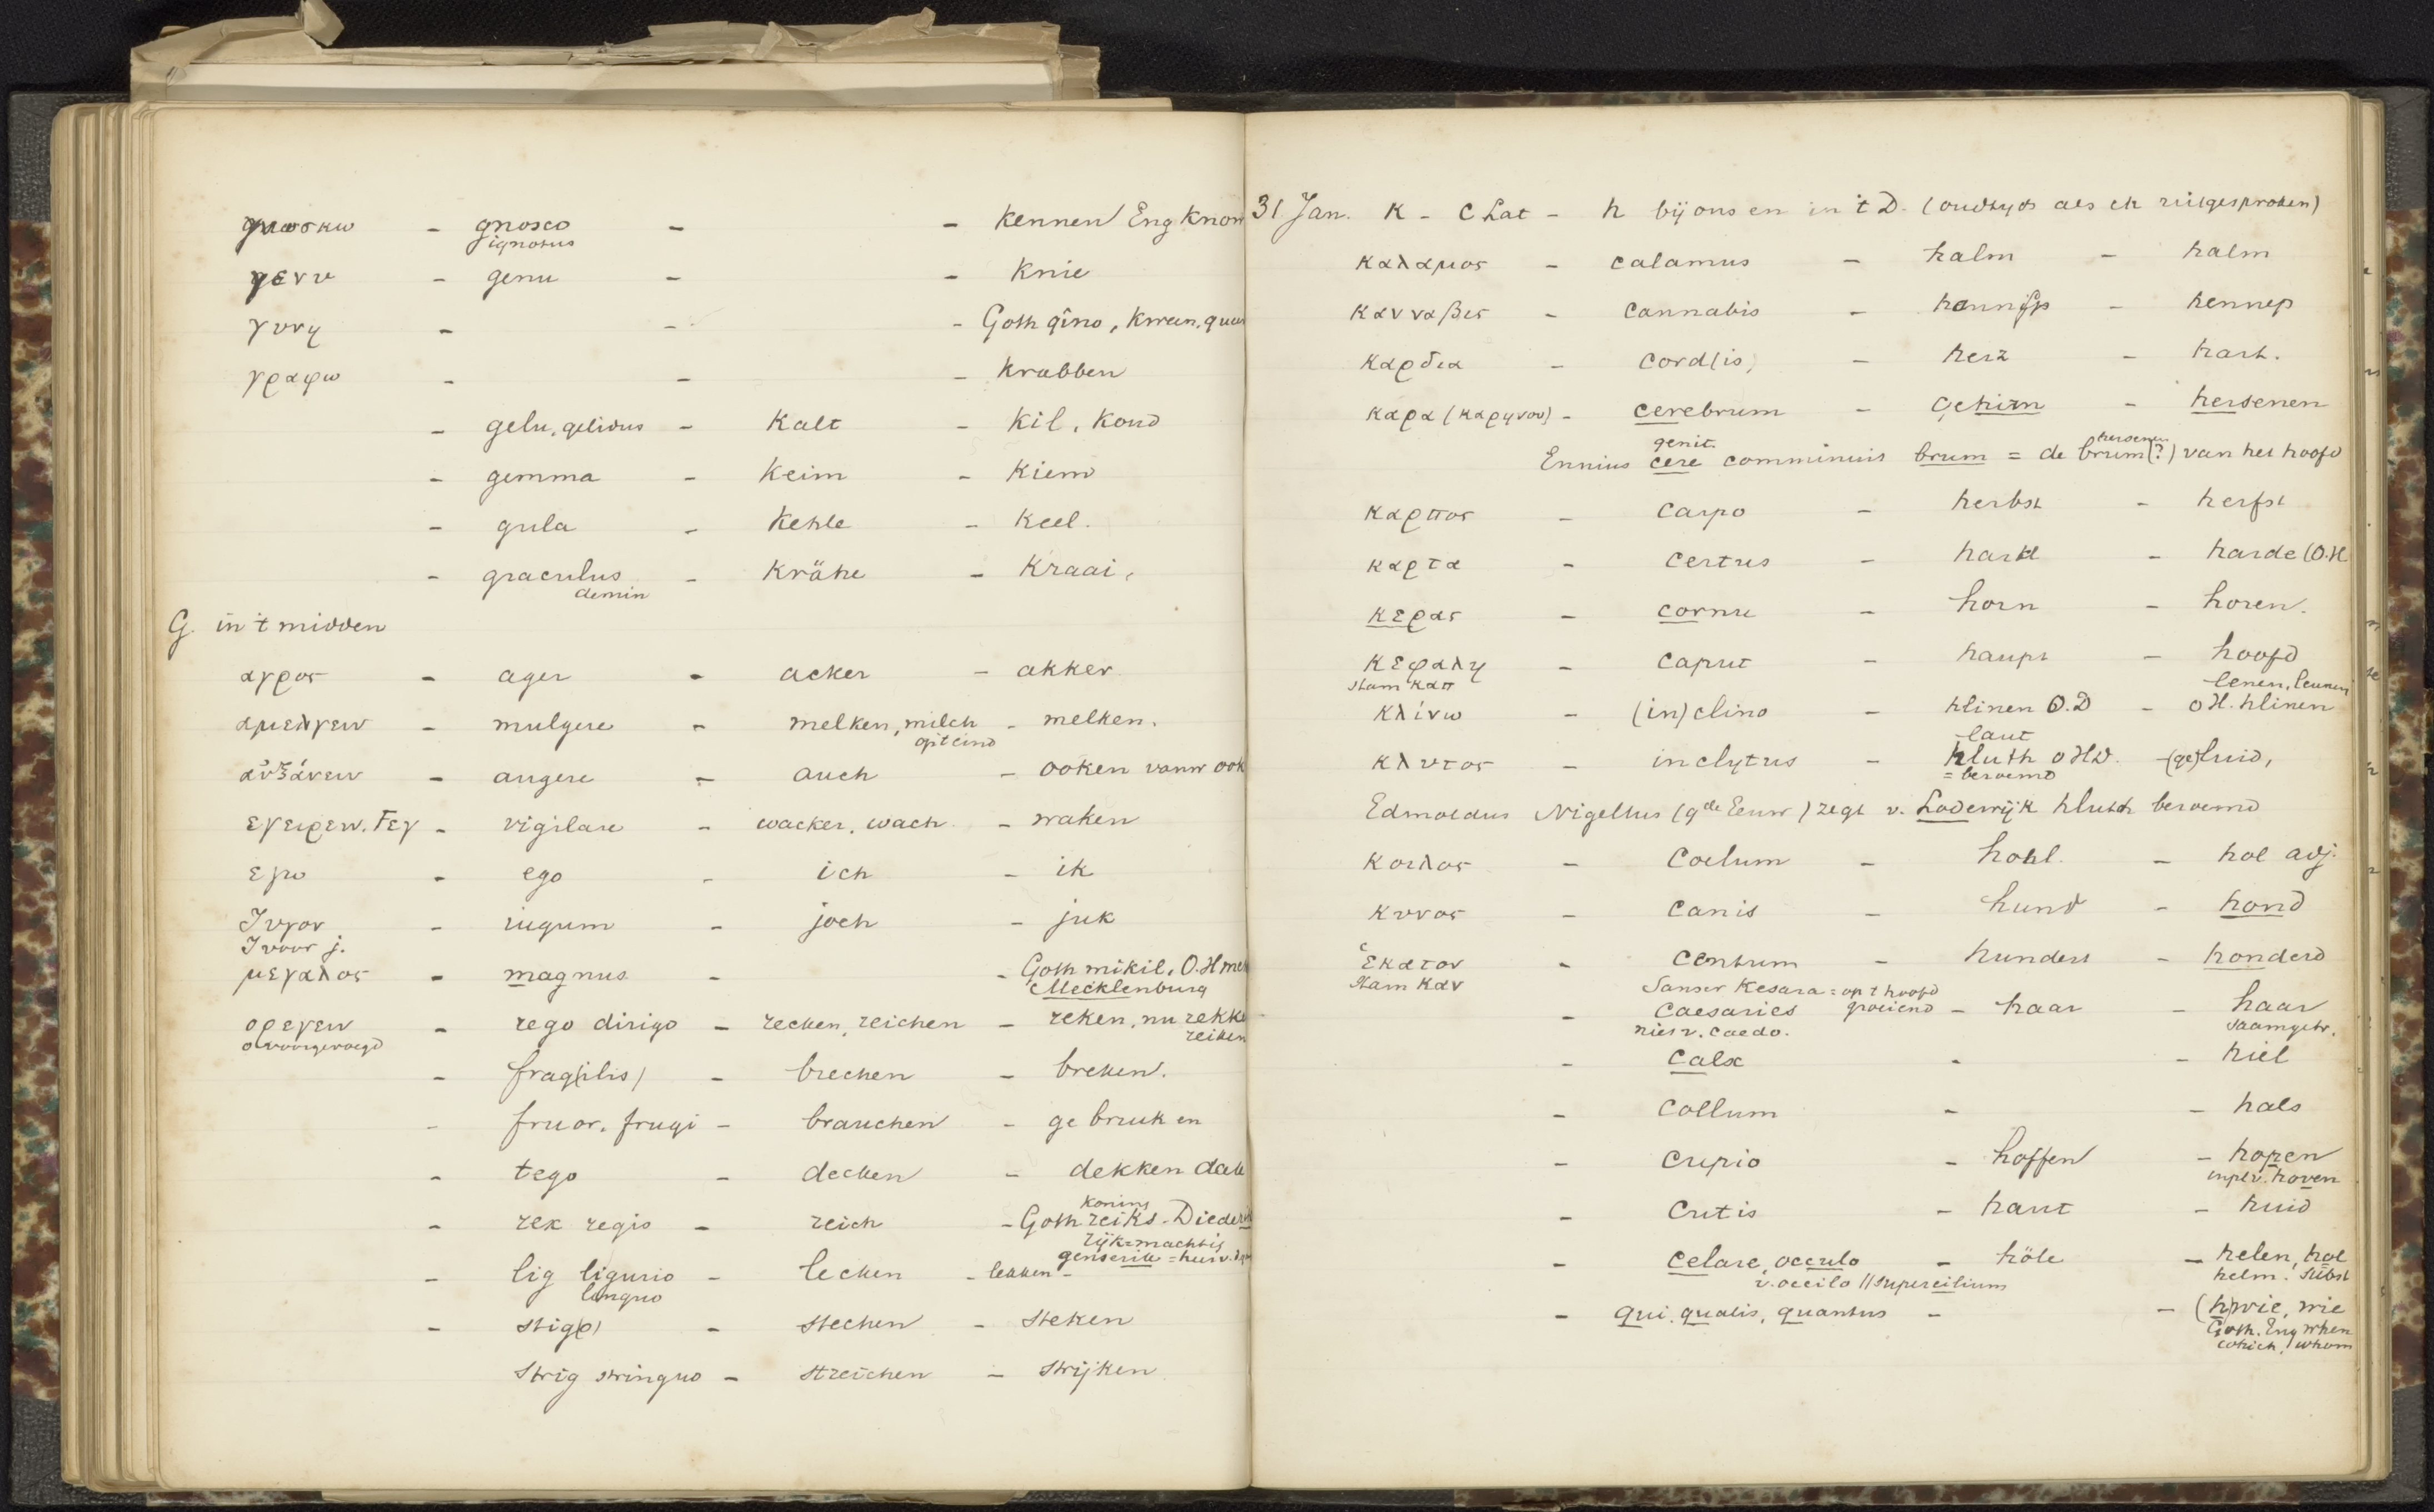 γνωσκω - gnosco - - kennen Eng know
ignotus
γενυ - genu - - knie
γυνη - - - Goth qîno, kween, queen
γραφω - - - krabben
- gelu, gelidus - kalt - kil, koud
- gemma - keim - kiem
- gula - kehle - keel.
- graculus - krähe - kraai,
demin
G. in 't midden
αγρος - ager - acker - akker
αμελγειν - mulgere - melken, milch - melken.
op 't eind
αὐξάνειν - augere - auch - ooken vanw ook
εγειρειν. Fεγ - vigilare - wacker, wach - waken
εγω - ego - ich - ik
Ζυγον - iugum - joch - juk
Ζ voor j.
μεγαλος - magnus - - Goth mikil, O.H
Mecklenburg
ορεγειν - rego dirigo - recken, reichen - reken, nu rekke
o voorgevoegd reiken
- frag(ilis) - brechen - breken.
- fruor, frugi - brauchen - gebruiken
- tego - decken - dekken dak
koning
- rex regis - reich - Goth reiks - Diederik
rijk = machtig
genserik = heer v.
- lig ligurio - lecken - lekken -
linguo
- stig(o) - stechen - steken
strig stringuo - streichen - strijken
31 Jan. K - C Lat - h bij ons en in 't D. (oudtyds als ch uitgesproken)
καλαμος - calamus - halm - halm
κανναβις - cannabis - hannif - hennep
καρδια - cord(is) - herz - hart.
καρα (καρηνον) - cerebrum - Gehirn - hersenen
genit. hersenen
Ennius cere comminuit brum = de brum (?) van het hoofd
καρπος - carpo - herbst - herfst
καρτα - certus - hard - harde (O.H
κερας - cornu - horn - horen.
κεφαλη - caput - haupt - hoofd
stam καπ lenen, leunen
κλίνω - (in)clino - hlinen O.D - O H. hlinen
laut
κλυτος - inclytus - hluth O HD. - (ge)luid,
= beroemd
Edmoldus Nigellus (9de Eeuw) zegt v. Lodewijk hluth beroemd
κοιλος - Coelum - hohl. - hol adj.
κυνος - canis - hund - hond
ἑκατον - centum - hundert - honderd
stam καν Sanscr Kesara = op 't hoofd
- caesaries groeiend - haar - haar
niet v. caedo. saamgetr.
- calx - - hiel
- collum - - hals
- cupio - hoffen - hopen
inplv. hoven
- cutis - haut - huid
- celare, occulo - höle - helen, hol
v. occilo // supercilium helm. subst
- qui, qualis, quantus - - (h)wie, wie
Goth. Eng when
which, whom